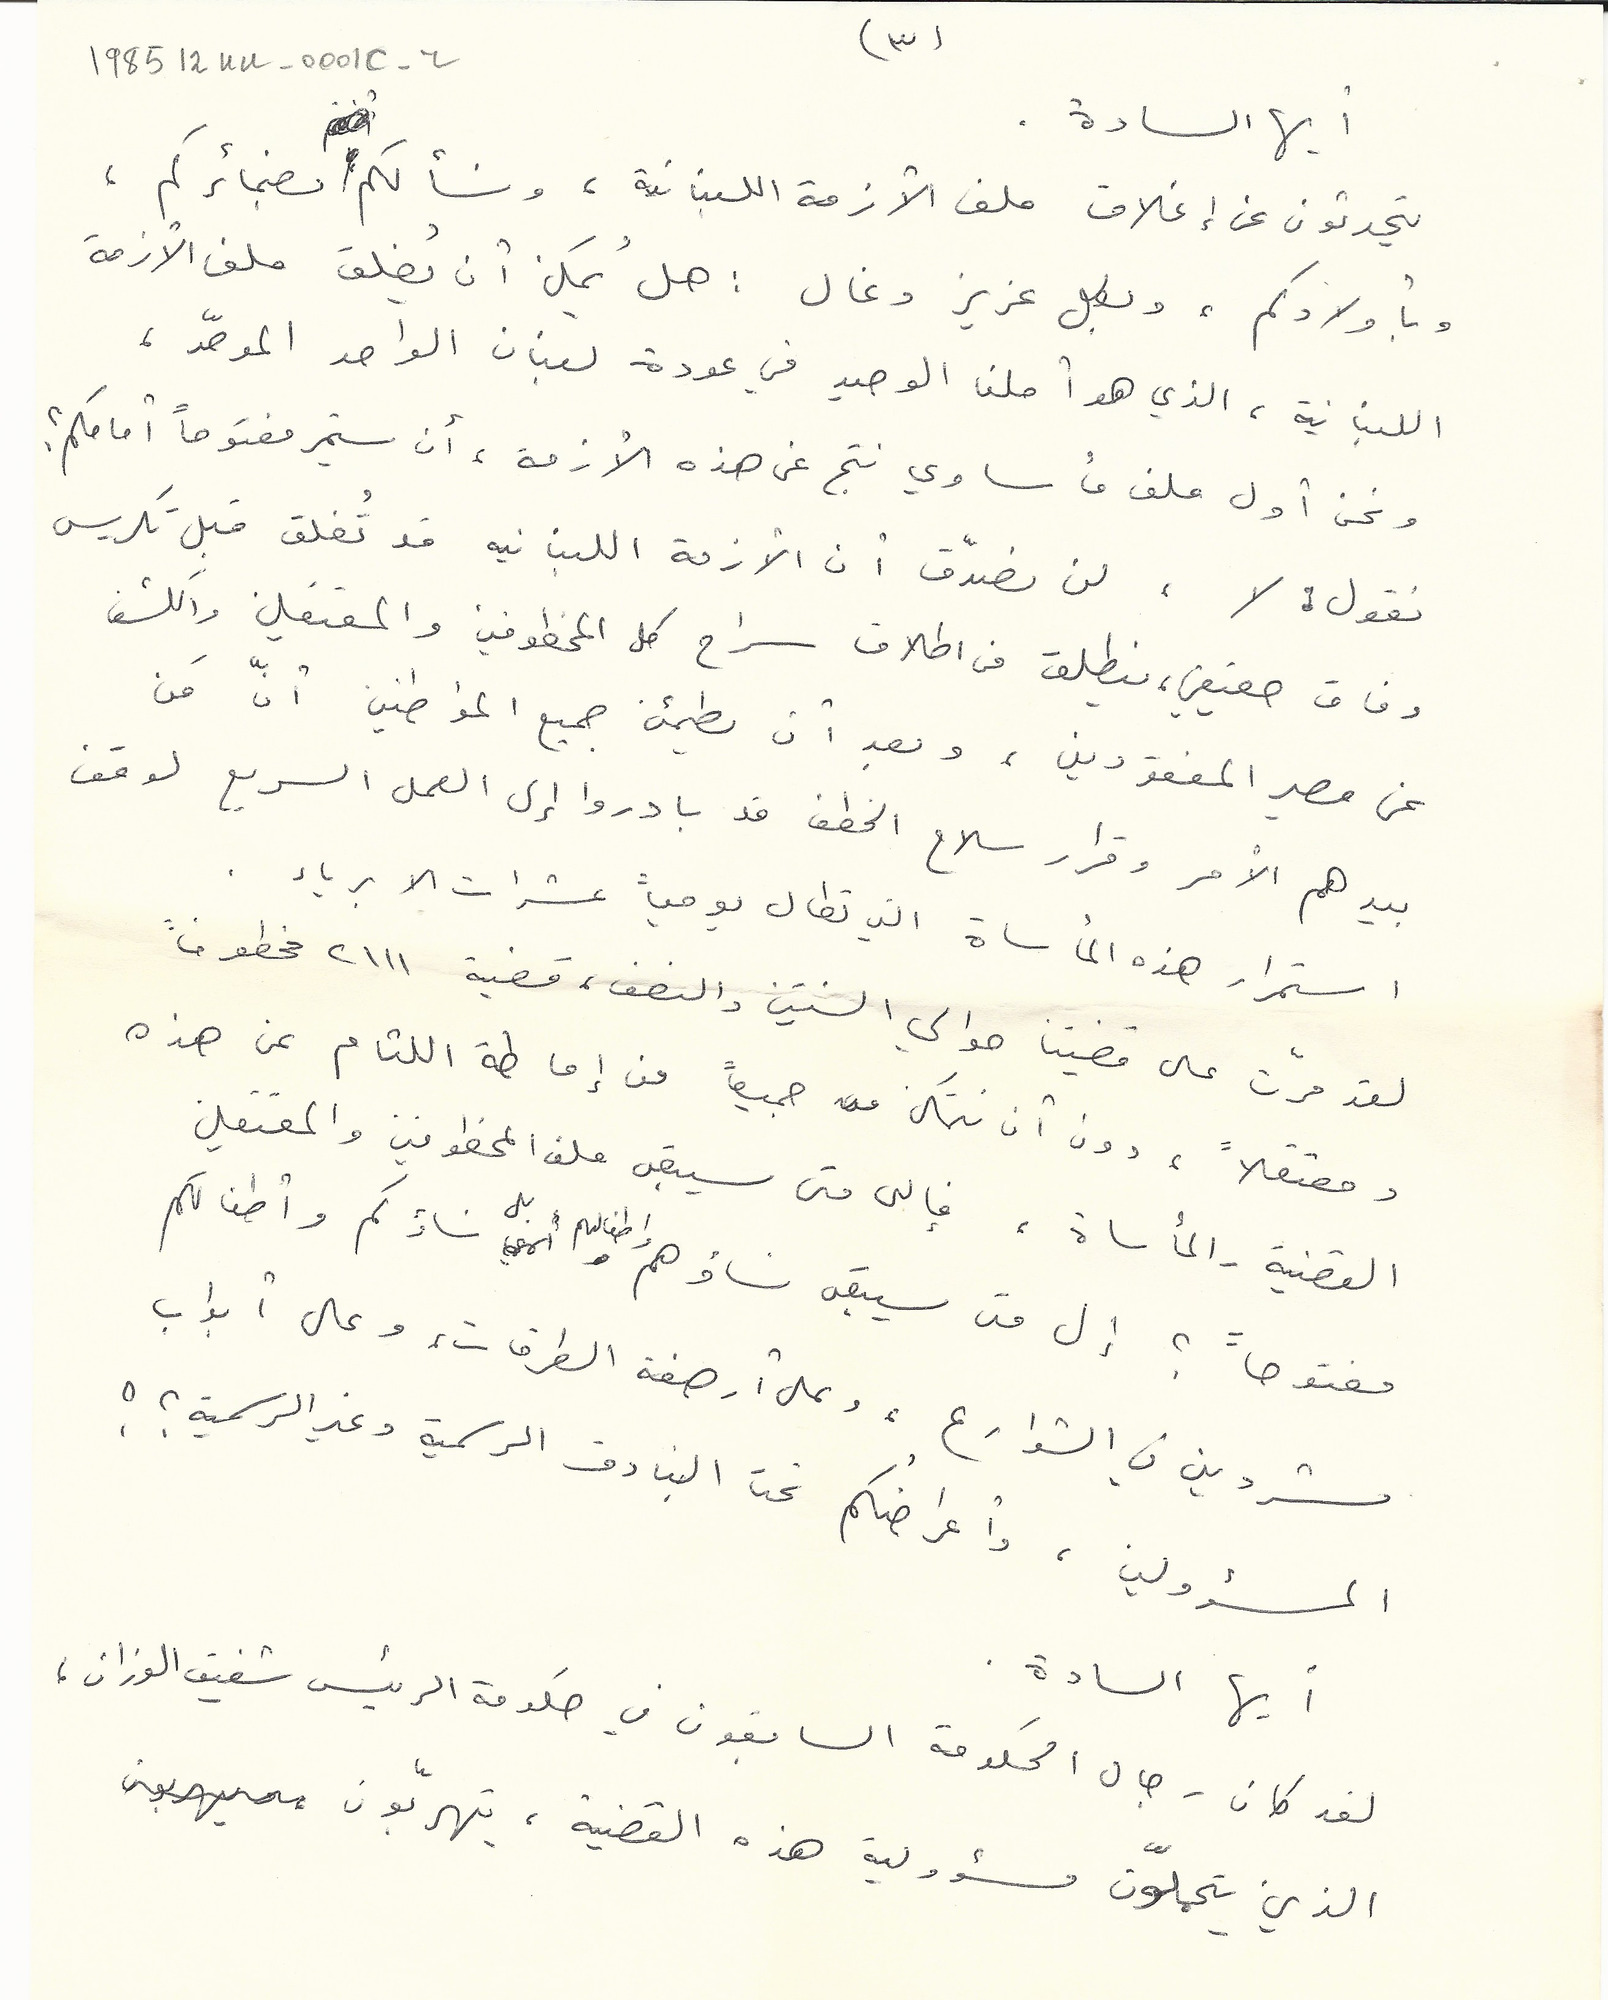 (٣)
1985 12 nn - 0001C - 2
أيها السادة .
يتحدثون عن إغلاق ملف الأزمة اللبنانية ، ونسألكم بضمائركم ،
وبأولادكم ، وبكل عزيز وغال : هل يُمكن أن يُغلق ملف الأزمة
اللبنانية ، الذي هو أملنا الوحيد في عودة لبنان الواحد الموحّد ،
ونحن أول ملف مأساوي نتج عن هذه الأزمة ، أن ستمر مفتوحاً أمامكم ؟
نقول : لا ، لن نصدّق أن الأزمة اللبنانيه قد تُغلق قبل تكريس
وفاق حقيقي ، ينطلق من اطلاق سراح كل المخطوفين والمعتقلين والكشف
عن مصير المفقودين ، وبعد أن يطمئن جميع المواطنين أنّ مَن
بيدهم الأمر وقرار سلاح الخطف قد بادروا إلى العمل السريع لوقف
استمرار هذه المأساة التي تطال يومياً عشرات الابرياء .
لقد مرّت على قضيتنا حوالي السنتين والنصف ، قضية ٢١١١ مخطوفاً
ومعتقلاً ، دون أن نتمكن جميعاً من إماطة اللثام عن هذه
القضية - المأساة ، فإلى متى سيبقى ملف المخطوفين والمعتقلين
مفتوحاً ؟ إلى متى سيبقى نساؤهم وأطفالهم بل نساؤكم وأطفالكم
مشردين في الشوارع ، وعلى أرصفة الطرقات ، وعلى أبواب
المسؤولين ، وأعراضُكم تحت البنادق الرسمية وغير الرسمية ؟ ؟
أيها السادة .
لقد كان رجال الحكومة السابقون في حكومة الرئيس شفيق الوزان ،
الذين يتحملّون مسؤولية هذه القضية ، يتهرّبون